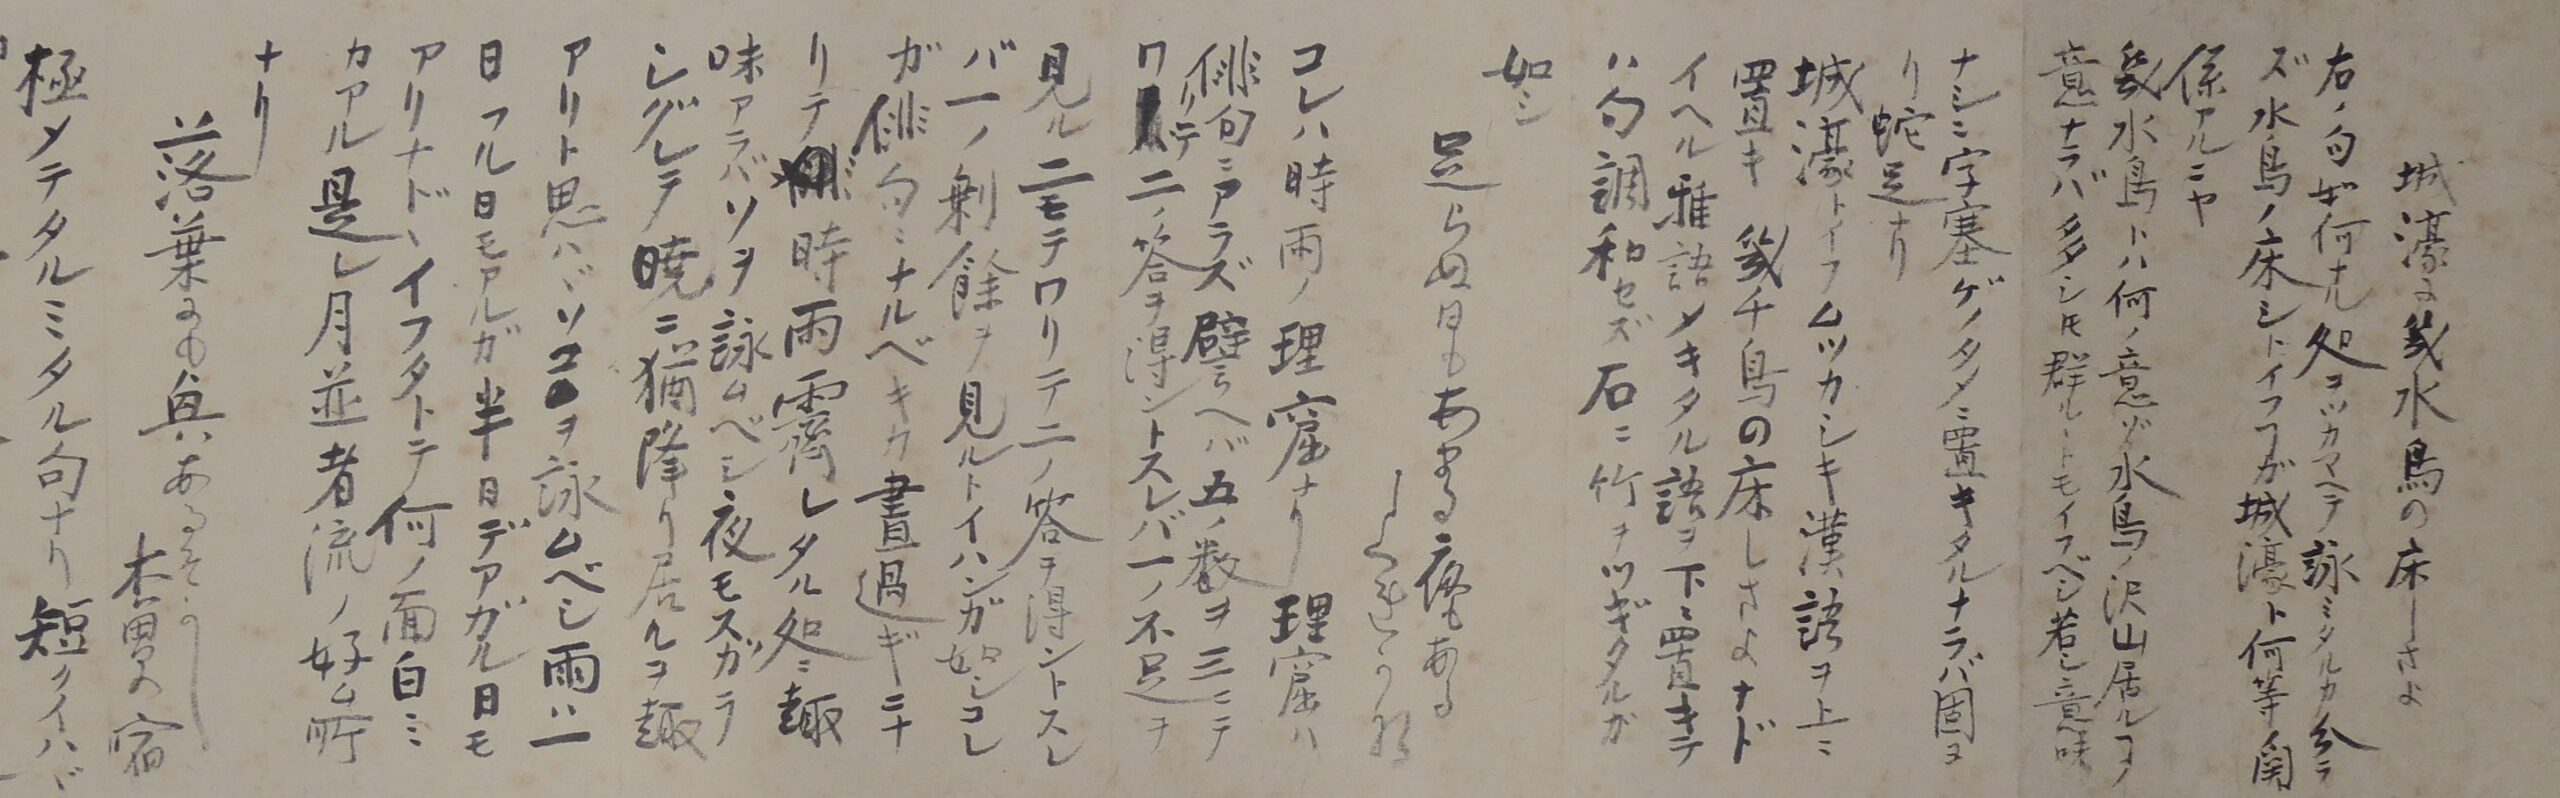 城濠に幾水鳥の床しさよ
右ノ句ギ何ナル処ヲツカマヘテ詠ミタルカ分ラ
ズ水鳥ノ床シトイフフガ城濠ト何等ノ関
係アルニヤ
幾水鳥トハ何ノ意ゾ水鳥ノ沢山居ルフノ
意ナラバ多シトモ群ルヽトモイフベシ若シ意味
ナシニ字塞ゲノタメニ置キタルナラバ固ヨ
リ蛇足ナリ
城濠トイフムツカシキ漢語ヲ上ニ
置キ幾千鳥の床しさよナド
イヘル雅語メキタル語ヲ下ニ置キテ
ハ句調和セズ石ニ竹ヲツギタルガ
如シ
足らぬ日もあまる夜もある
しくれかな
コレハ時雨ノ理窟ナリ理窟ハ
俳句ニアラズ譬ヘバ五ノ数ヲ三ニテ
ワリテ二ノ答ヲ得ントスレバ一ノ不足ヲ
見ル二モテワリテ二ノ答ヲ得ントスレ
バ一ノ剰餘ヲ見ルトイハンガ如シコレ
ガ俳句ニナルベキカ晝過ギニナ
リテ時雨霽レタル処ニ趣
味アラバソヲ詠ムベシ夜モスガラ
シグレテ暁ニ猶降リ居ルヲ趣
アリト思ハヾソコヲ詠ムベシ雨ハ一
日フル日モアルガ半日デアガル日モ
アリナドヽイフタトテ何ノ面白ミ
カアル是レ月並者流ノ好ム所
ナリ
落葉にも奥ハある
木曽の宿
極メテタルミタル句ナリ短クイハヾ